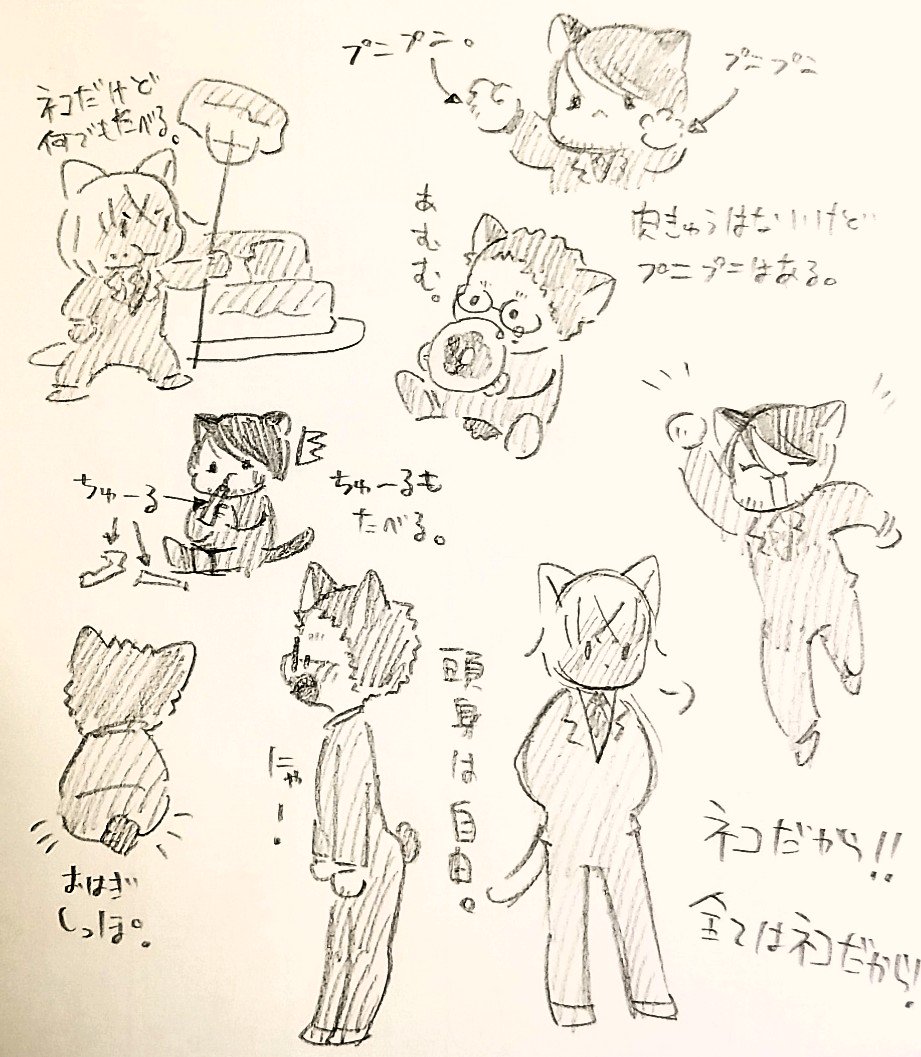 プニプニ。
プニプニ
ネコだけど
何でもたべる。
あむむむ。
肉きゅうはないけど
プニプニはある。
ちゅーる
ちゅーるも
たべる。
頭身は自由。
にゃー!
おはぎ
しっぽ。
ネコだから!!
全てはネコだから!